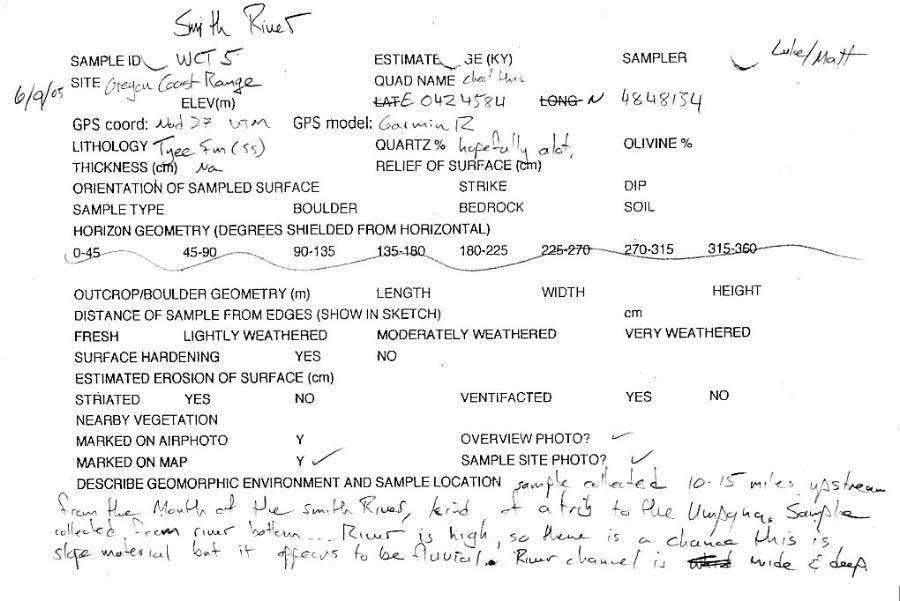 Smith River
SAMPLE ID WCT 5 ESTIMATE GE (KY) SAMPLER Luke/Matt
6/9/05 SITE Oregon Coast Range QUAD NAME check this
ELEV(m) LAT E 0424584 LONG N 4848134
GPS coord: Nad 27 UTM GPS model: Garmin 12
LITHOLOGY Tyee Fm (ss) QUARTZ % hopefully alot, OLIVINE %
THICKNESS (cm) Na RELIEF OF SURFACE (cm)
ORIENTATION OF SAMPLED SURFACE STRIKE DIP
SAMPLE TYPE BOULDER BEDROCK SOIL
HORIZON GEOMETRY (DEGREES SHIELDED FROM HORIZONTAL)
0-45 45-90 90-135 135-180 180-225 225-270 270-315 315-360
OUTCROP/BOULDER GEOMETRY (m) LENGTH WIDTH HEIGHT
DISTANCE OF SAMPLE FROM EDGES (SHOW IN SKETCH) cm
FRESH LIGHTLY WEATHERED MODERATELY WEATHERED VERY WEATHERED
SURFACE HARDENING YES NO
ESTIMATED EROSION OF SURFACE (cm)
STRIATED YES NO VENTIFACTED YES NO
NEARBY VEGETATION
MARKED ON AIRPHOTO Y OVERVIEW PHOTO? ✓
MARKED ON MAP Y ✓ SAMPLE SITE PHOTO? ✓
DESCRIBE GEOMORPHIC ENVIRONMENT AND SAMPLE LOCATION sample collected 10-15 miles upstream
from the Mouth of the smith River, kind of a trib to the Umpqua. Sample
collected from river bottom... River is high, so there is a chance this is
slope material but it appears to be fluvial. River channel is wide & deep